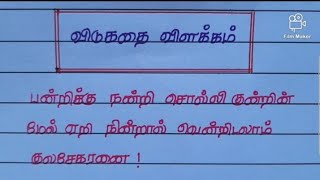 விடுகதை விளக்கம்
பன்றிக்கு நன்றி சொல்லி குன்றின்
மேல் ஏறி நின்றால் வென்றிடலாம்
குலசேகரனை !
Film Maker